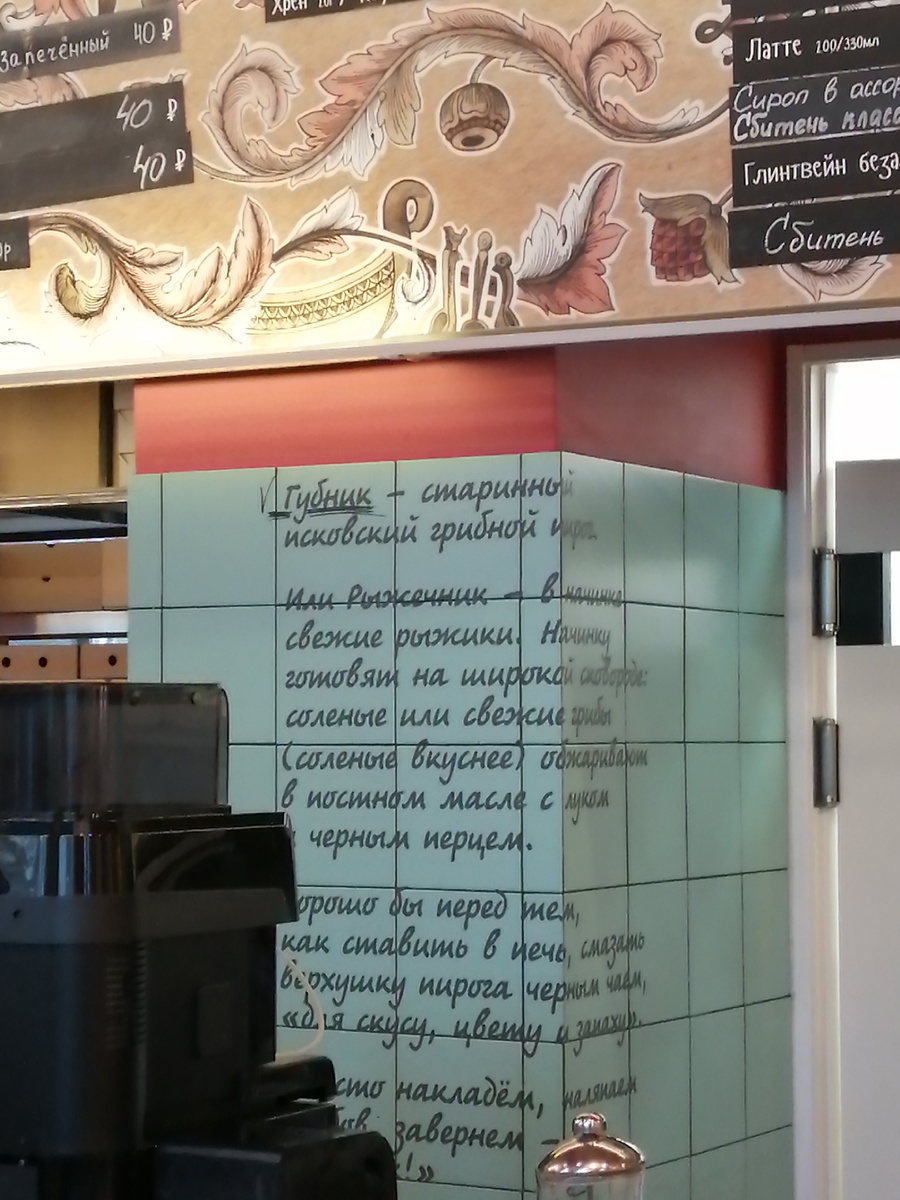 Хрен
запечённый 40 ₽
40 ₽
40 ₽
Латте 100/330мл
Сироп в ассор
Сбитень класс
Глинтвейн беза
Сбитень
Губник – старинный
псковский грибной пирог.
Или Рыжечник – в начинке
свежие рыжики. Начинку
готовят на широкой сковороде:
соленые или свежие грибы
(соленые вкуснее) обжаривают
в постном масле с луком
черным перцем.
орошо бы перед тем,
как ставить в печь, смазать
верхушку пирога черным чаем,
«для скусу, цвету и запаху».
сто накладём, наляпаем
завернем –
!»